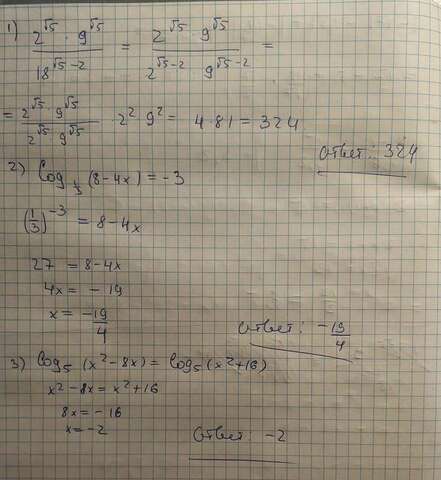 1) 2^√5 · 9^√5 / 18^(√5-2) = 2^√5 · 9^√5 / 2^(√5-2) 9^(√5-2) =
= 2^√5 · 9^√5 / 2^√5 · 9^√5 · 2² 9² = 4·81 = 324
Ответ: 324
2) log_(1/3) (8-4x) = -3
(1/3)^-3 = 8-4x
27 = 8-4x
4x = -19
x = -19/4
Ответ: -19/4
3) log₅ (x²-8x) = log₅ (x²+16)
x²-8x = x²+16
8x = -16
x = -2
Ответ: -2